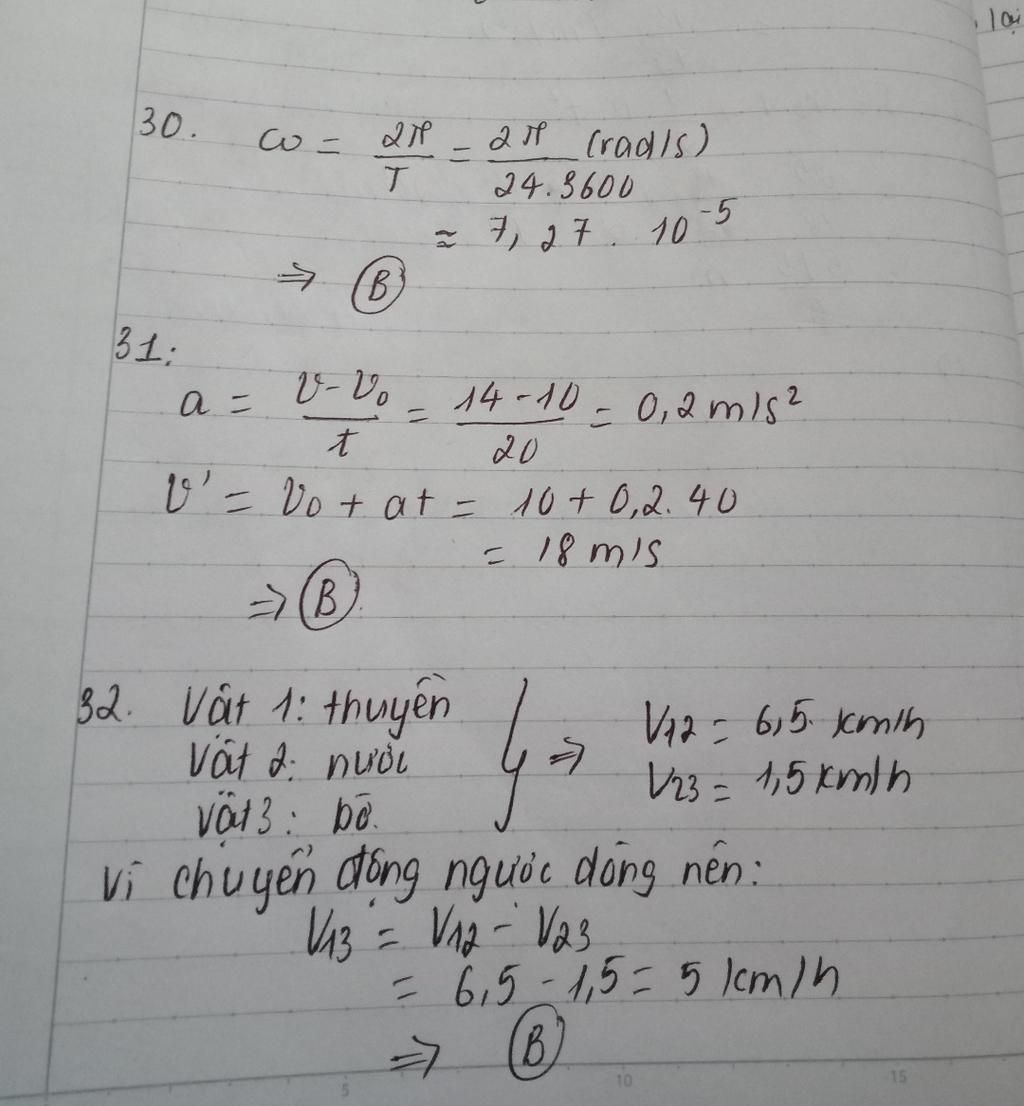 lại
30. ω = 2π/T = 2π/24.3600 (rad/s)
≈ 7,27 . 10^-5
⇒ B
31:
a = v-v₀/t = 14-10/20 = 0,2 m/s²
v' = v₀ + at = 10 + 0,2.40
= 18 m/s
⇒ B.
32. Vật 1: thuyền
Vật 2: nước
Vật 3: bờ.
} ⇒ V12 = 6,5 km/h
V23 = 1,5 km/h
Vì chuyển động ngược dòng nên:
V13 = V12 - V23
= 6,5 - 1,5 = 5 km/h
⇒ B
5 10 15